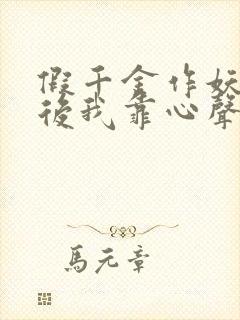 假千金作妖
後我靠心聲
馬元章